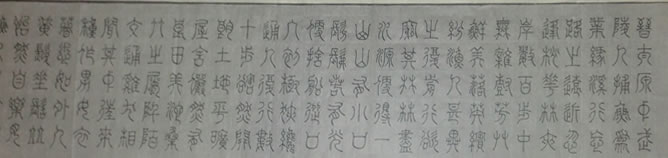 晉太原中武
陵人捕魚為
業緣溪行忘
路之遠近忽
逢桃花林夾
岸數百步中
無雜樹芳草
鮮美落英繽
紛漁人甚異
之復前行欲
窮其林林盡
水源便得一
山山有小口
髣髴若有光
便捨船從口
入初極狹纔
通人復行數
十步豁然開
朗土地平曠
屋舍儼然有
良田美池桑
竹之屬阡陌
交通雞犬相
聞其中往來
種作男女衣
著悉如外人
黃髮垂髫並
怡然自樂見